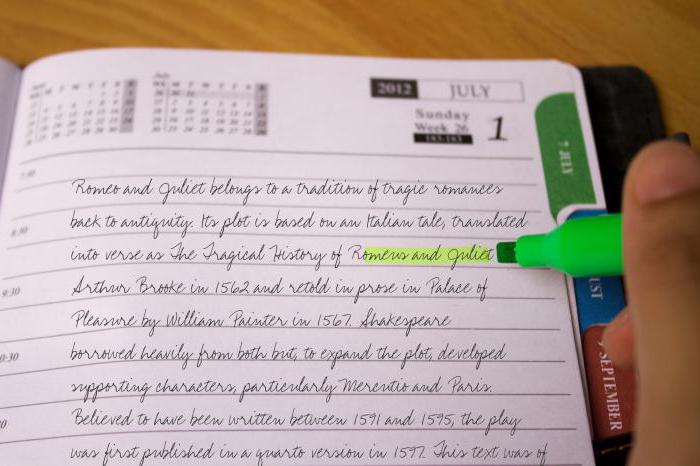 2012 JULY
Sunday 1
Week 26
7 JULY
7:30
Romeo and Juliet belongs to a tradition of tragic romances
back to antiquity. Its plot is based on an Italian tale, translated
8:30
into verse as The Tragical History of Romeus and Juliet
Arthur Brooke in 1562 and retold in prose in Palace of
9:30
Pleasure by William Painter in 1567. Shakespeare
borrowed heavily from both but, to expand the plot, developed
0:30
supporting characters, particularly Mercutio and Paris.
Believed to have been written between 1591 and 1595, the play
was first published in a quarto version in 1597. This text was of
UST
SEPTEMBER